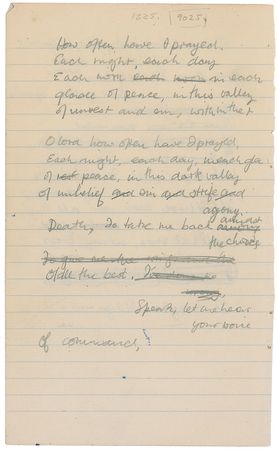 1025. 9025.
How often have I prayed.
Each night, each day
Each in each
glance of peace, in this valley
of unrest and sin, within the
O lord how often have I prayed
Each night, each day, in each gla
of rest peace, in this dark valley
of unbelief and sin and strife and
agony.
Death, To take me back among amidst
the choice
To give me the
Of all the best.
Speak, let me hear
your voice
Of command,